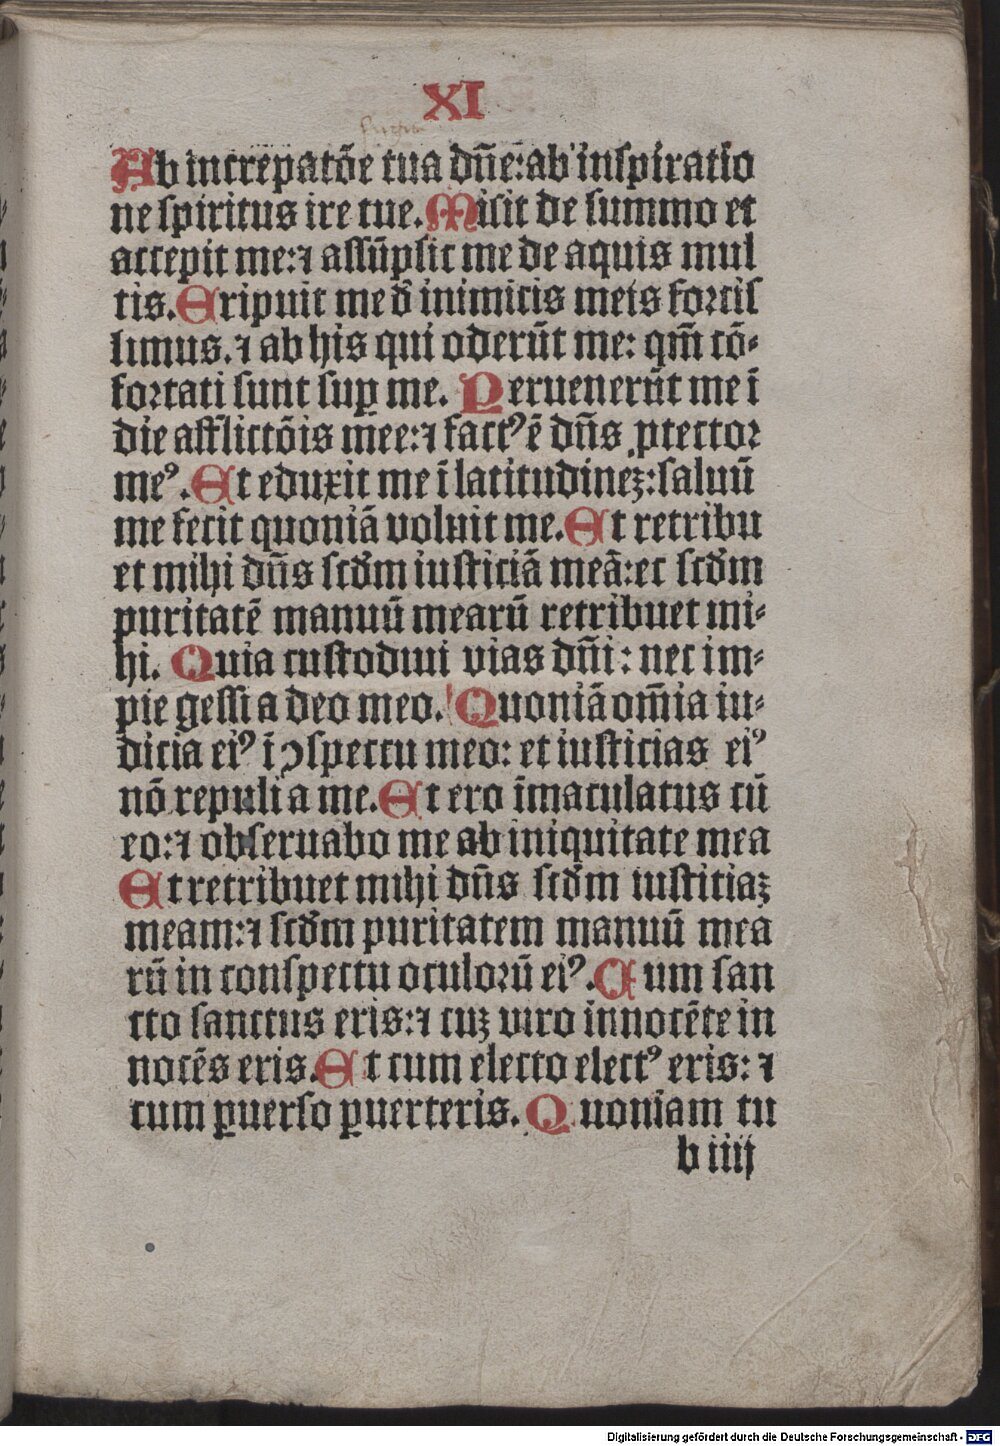 XI
Ab increpatōe tua dn̄e: ab inſpiratio
ne ſpiritus ire tue. Miſit de ſummo et
accepit me: ⁊ aſſūpſit me de aquis mul
tis. Eripuit me đ inimicis meis fortiſ
ſimus. ⁊ ab his qui oderūt me: qm̄ cō⸗
fortati ſunt ſuꝑ me. Peruenerūt me ī
die afflictōis mee: ⁊ factꝰ ē dn̄s ꝓtector
meꝰ. Et eduxit me ī latitudineꝫ: ſaluū
me fecit quoniā voluit me. Et retribu
et mihi dn̄s ſcđm iuſticiā meā: et ſcđm
puritatē manuū mearū retribuet mi⸗
hi. Quia cuſtodiui vias dn̄i: nec im⸗
pie geſſi a deo meo. Quoniā om̄ia iu⸗
dicia eiꝰ ī ꝯſpectu meo: et iuſticias eiꝰ
nō repuli a me. Et ero īmaculatus cū
eo: ⁊ obſeruabo me ab iniquitate mea
Et retribuet mihi dn̄s ſcđm iuſticiaꝫ
meam: ⁊ ſcđm puritatem manuū mea
rū in conſpectu oculorū eiꝰ. Cum ſan
cto ſanctus eris: ⁊ cuꝫ viro innocēte in
nocēs eris. Et cum electo electꝰ eris: ⁊
cum ꝑuerſo ꝑuerteris. Quoniam tu
b iiij
Digitalisierung gefördert durch die Deutsche Forschungsgemeinschaft - DFG